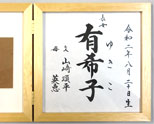 令和二年八月二十日生
長女
ゆきこ
有希子
父 山崎順平
母 英恵